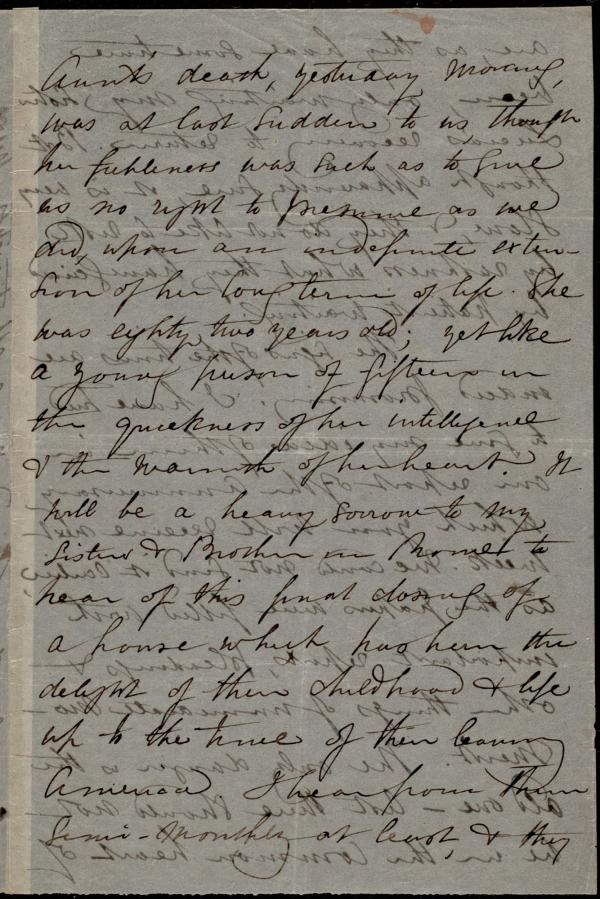 Aunt's death, yesterday morning,
was at last sudden to us though
her feebleness was such as to give
us no right to presume as we
did, upon an indefinite exten-
sion of her long term of life. She
was eighty two years old; yet like
a young person of fifteen in
the quickness of her intelligence
& the warmth of her heart. It
will be a heavy sorrow to my
Sisters & Brother in Rome to
hear of this final closing of
a house which has been the
delight of their childhood & life
up to the time of their leaving
America. I hear from them
Semi-monthly at least, & they